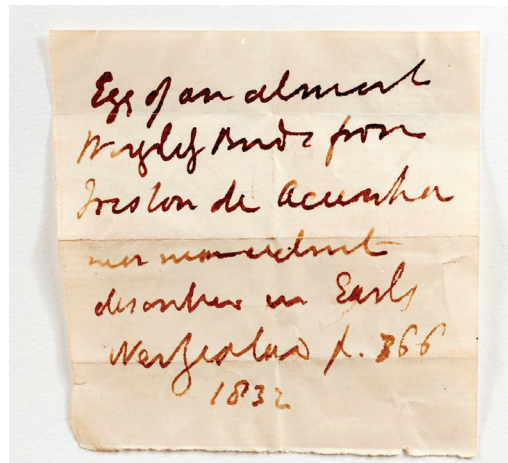 Egg of an almost
Wingless Bird from
Tristan de Acunha
described in Earle
New Zealand p. 366
1832